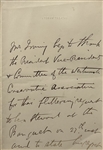 Mr Irving begs to thank
the President Vice President
& Committee of the Westminster
Conservative Association
for the flattering request
the
Banquet on 21st
and to state